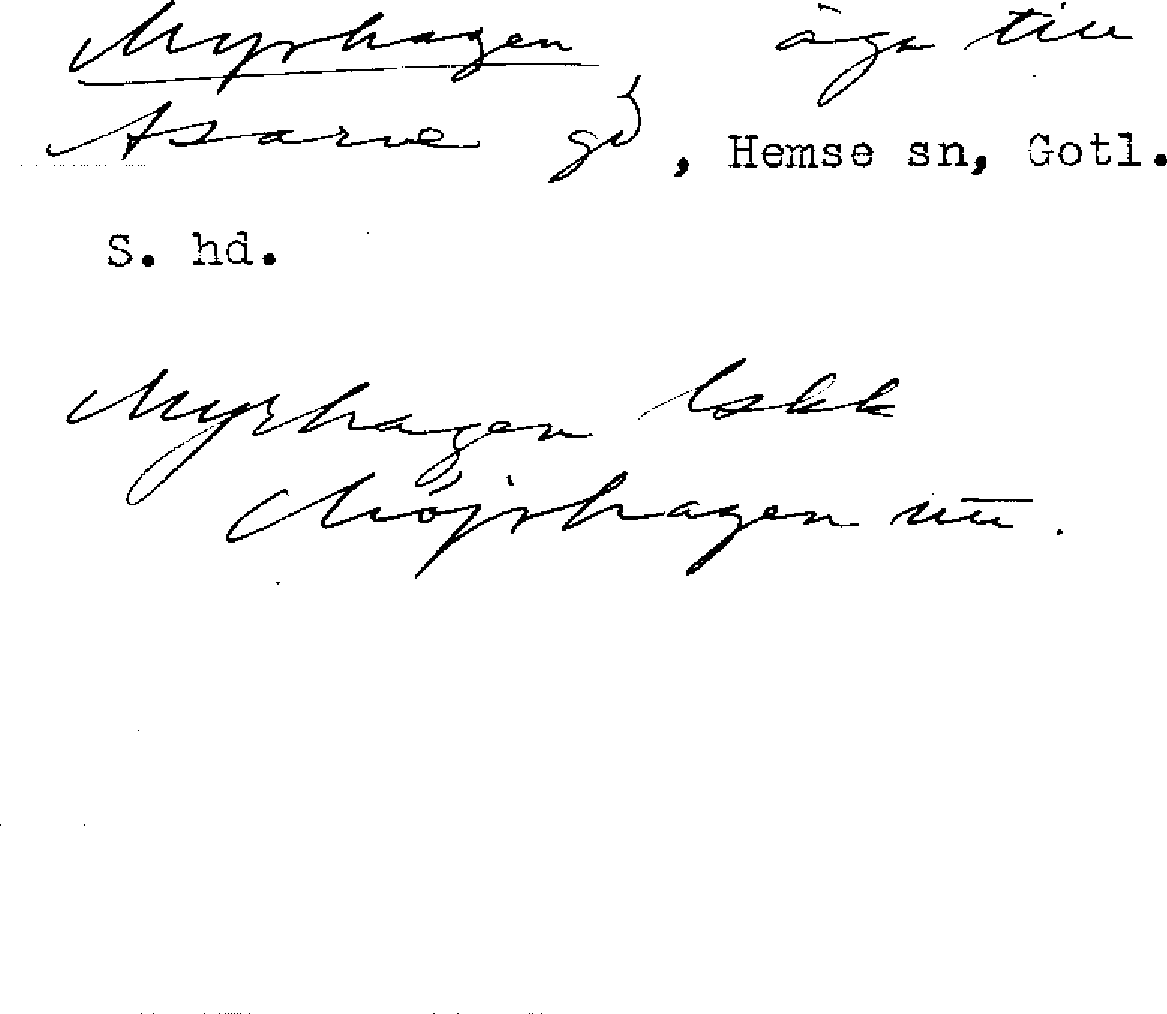 Myrhagen äga till
Asarve gd, Hemse sn, Gotl.
S. hd.
Myrhagen lskk
Möjrhagen